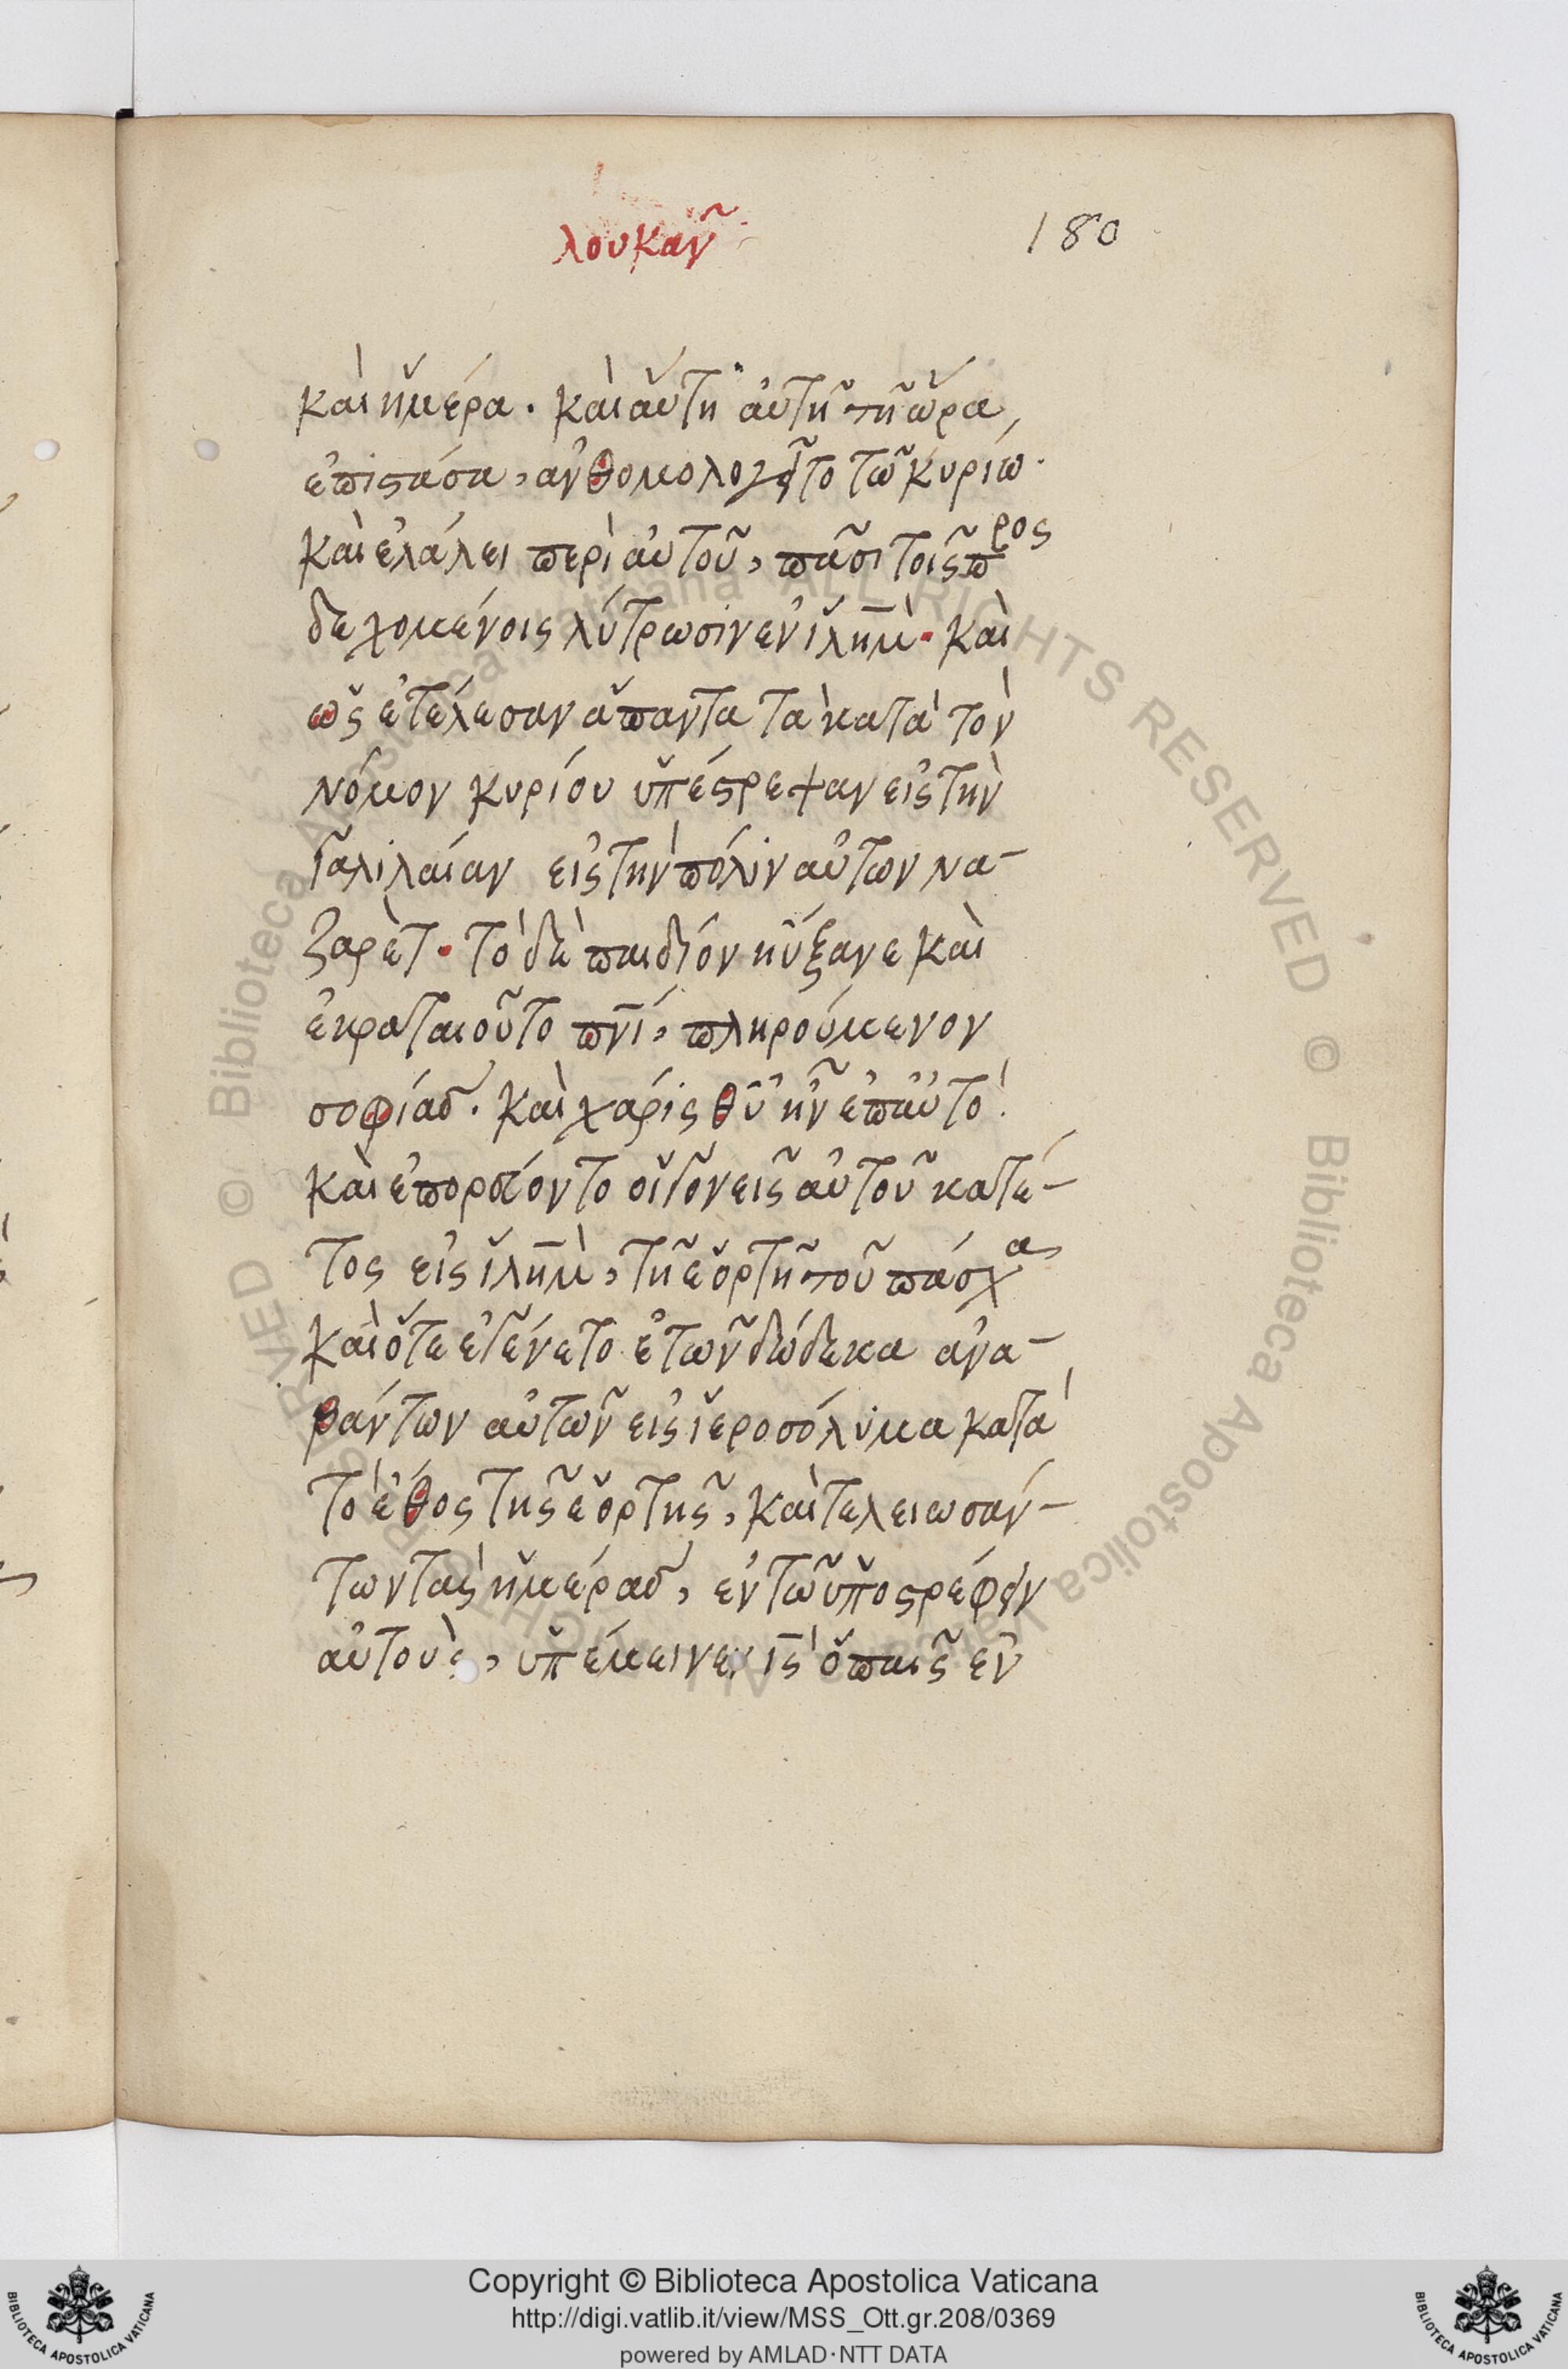 λουκᾶν
180
καὶ ἡμέρα. καὶ αὕτη αὐτῆ τῆ ὥρα,
ἐπιστάσα, ἀνθομολογεῖτο τῶ κυρίω.
καὶ ἐλάλει περὶ αὐτοῦ, πᾶσι τοῖς προς
δεχομένοις λύτρωσιν ἐν ἱλημ̅. καὶ
ὡς ἐτέλεσαν ἅπαντα τὰ κατὰ τὸν
νόμον κυρίου ὑπέστρεψαν εἰς τὴν
Γαλιλαίαν εἰς τὴν πόλιν αὐτῶν να-
ζαρὲτ. τὸ δὲ παιδίον ηὔξανε καὶ
ἐκραταιοῦτο πν̅ι, πληρούμενον
σοφίας. καὶ χάρις θ̅υ ἦν ἐπαὐτό.
καὶ ἐπορεύοντο οἱ γονεῖς αὐτοῦ κατέ-
τος εἰς ἱλημ̅, τῆ ἑορτῆ τοῦ πάσχα,
καὶ ὅτε ἐγένετο ἐτῶν δώδεκα ἀνα-
βάντων αὐτῶν εἰς ἱεροσόλυμα κατὰ
τὸ ἔθος τῆς ἑορτῆς, καὶ τελειωσάν-
των τὰς ἡμέρας, ἐν τῶ ὑποστρέφειν
αὐτοὺς, ὑπέμεινεν ι̅ς ὁ παῖς ἐν
Copyright © Biblioteca Apostolica Vaticana
http://digi.vatlib.it/view/MSS_Ott.gr.208/0369
powered by AMLAD·NTT DATA
BIBLIOTECA APOSTOLICA VATICANA
BIBLIOTECA APOSTOLICA VATICANA